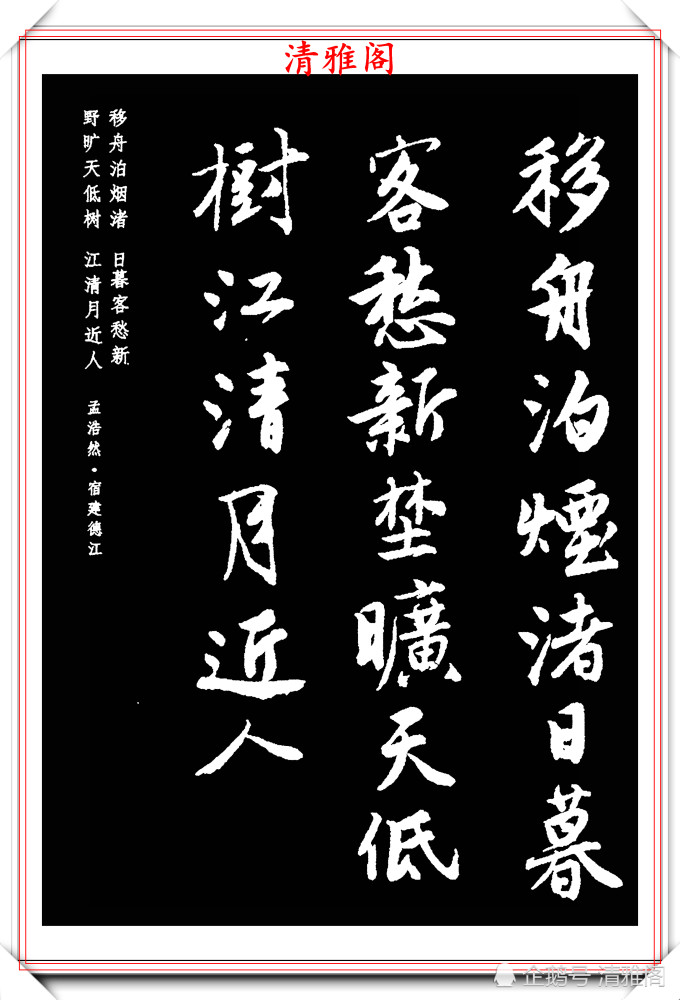 清雅阁
移舟泊煙渚日暮
客愁新埜曠天低
樹江清月近人
移舟泊烟渚 日暮客愁新
野旷天低树 江清月近人
孟浩然·宿建德江
企鹅号 清雅阁